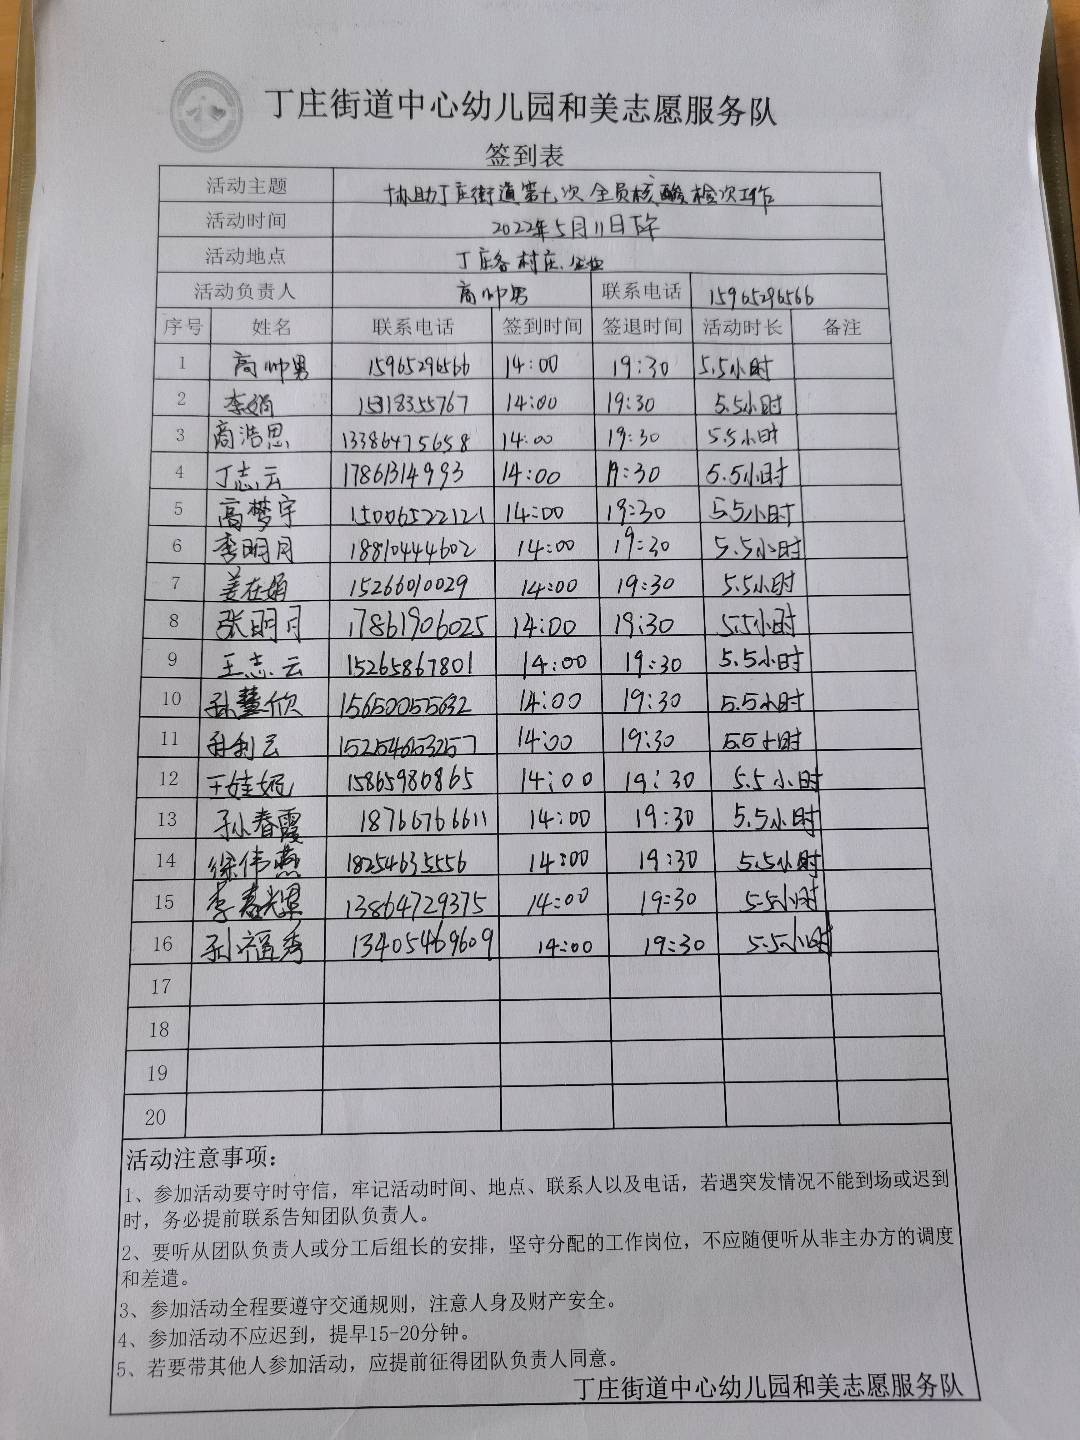 丁庄街道中心幼儿园和美志愿服务队
签到表
活动主题 协助丁庄街道第七次全员核酸检次工作
活动时间 2022年5月11日下午
活动地点 丁庄各村庄、企业
活动负责人 高帅男 联系电话 15965296566
序号 姓名 联系电话 签到时间 签退时间 活动时长 备注
1 高帅男 15965296566 14:00 19:30 5.5小时
2 李娟 15318355767 14:00 19:30 5.5小时
3 商浩思 13386475658 14:00 19:30 5.5小时
4 丁志云 17861314993 14:00 19:30 5.5小时
5 高梦宇 15006522121 14:00 19:30 5.5小时
6 李明月 18810444602 14:00 19:30 5.5小时
7 姜在娟 15266010029 14:00 19:30 5.5小时
8 张明月 17861906025 14:00 19:30 5.5小时
9 王志云 15265867801 14:00 19:30 5.5小时
10 孙慧欣 15650055632 14:00 19:30 5.5小时
11 利云 15254653257 14:00 19:30 5.5小时
12 王娃妮 15865980865 14:00 19:30 5.5小时
13 孙春霞 18766766611 14:00 19:30 5.5小时
14 徐伟燕 18254635556 14:00 19:30 5.5小时
15 李春辉 13864729375 14:00 19:30 5.5小时
16 孙福秀 13405469609 14:00 19:30 5.5小时
17
18
19
20
活动注意事项：
1、参加活动要守时守信，牢记活动时间、地点、联系人以及电话，若遇突发情况不能到场或迟到
时，务必提前联系告知团队负责人。
2、要听从团队负责人或分工后组长的安排，坚守分配的工作岗位，不应随便听从非主办方的调度
和差遣。
3、参加活动全程要遵守交通规则，注意人身及财产安全。
4、参加活动不应迟到，提早15-20分钟。
5、若要带其他人参加活动，应提前征得团队负责人同意。
丁庄街道中心幼儿园和美志愿服务队